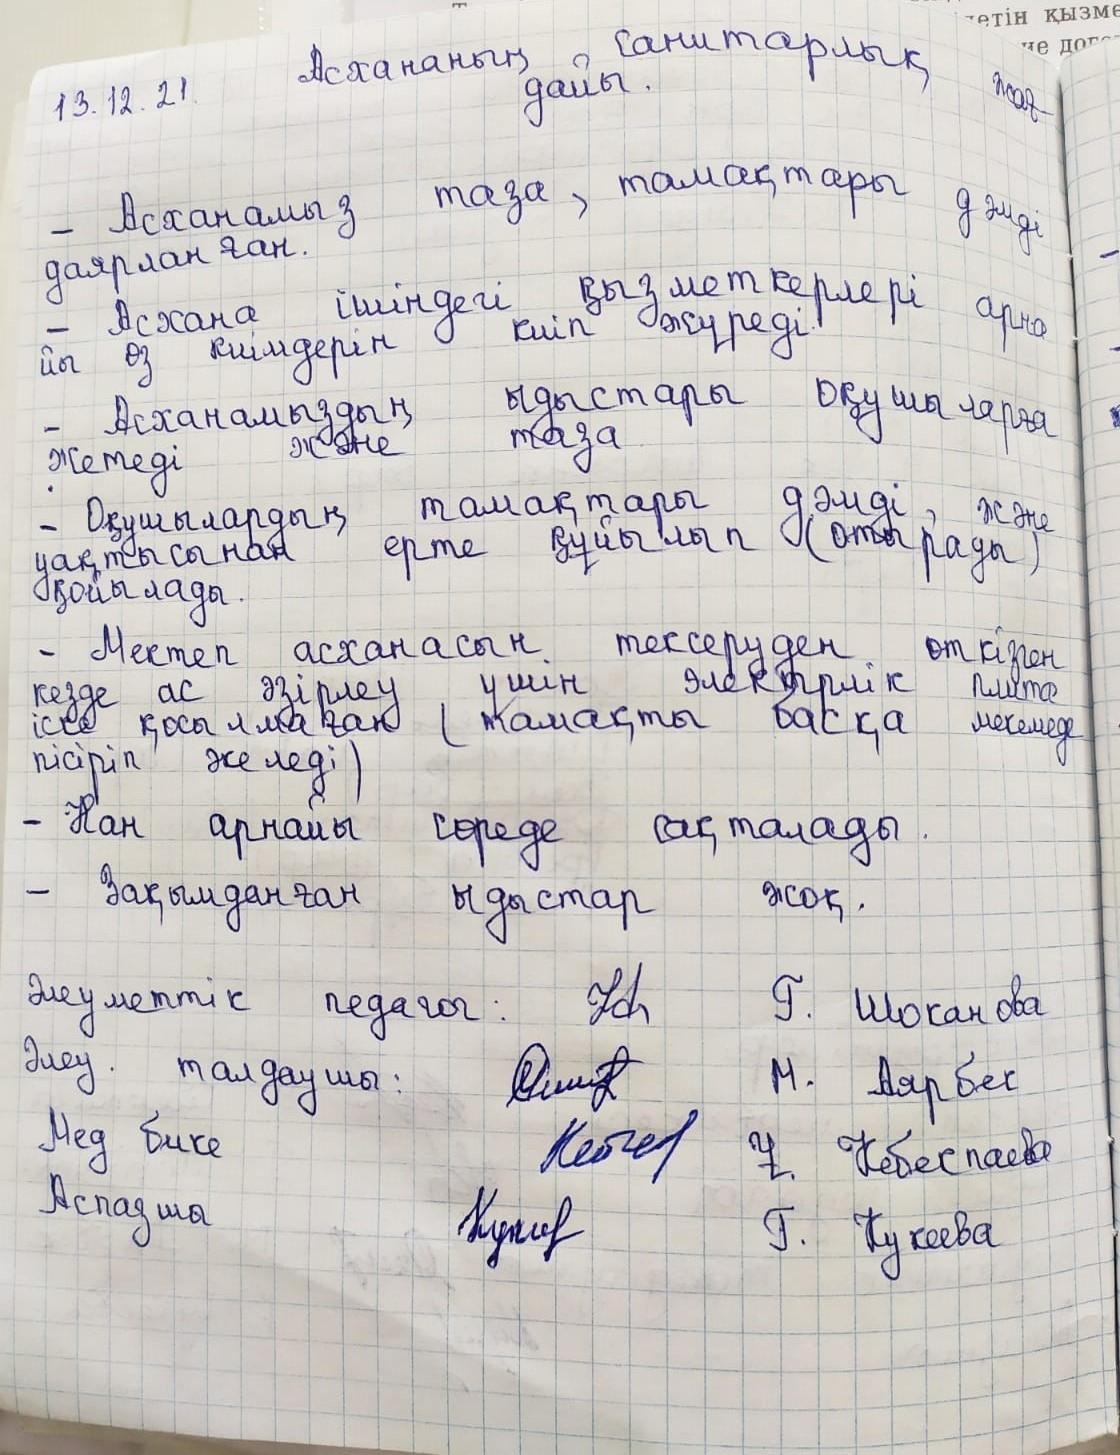 етін қызме
не дого
13.12.21. Асхананың санитарлық жағ-
дайы.
– Асханамыз таза, тамақтары дәмді
даярланған.
– Асхана ішіндегі қызметкерлері арна
йы өз киімдерін киіп жүреді.
– Асханамыздың ыдыстары оқушыларға
жетеді және таза
.
– Оқушылардың тамақтары дәмді, және
уақтысынан ерте құйылып (отырады)
қойылады.
– Мектеп асханасын тексеруден өткізген
кезде ас әзірлеу үшін электрлік плита
іске қосылмаған (тамақты басқа мекемеде
пісіріп әкеледі)
– Нан арнайы сөреде сақталады.
– Зақымданған ыдыстар жоқ.
Әлеуметтік педагог: Г. Шоканова
Әлеу. талдаушы: М. Аярбек
Мед бике Кебеспаева
Аспазшы Г. Кукеева